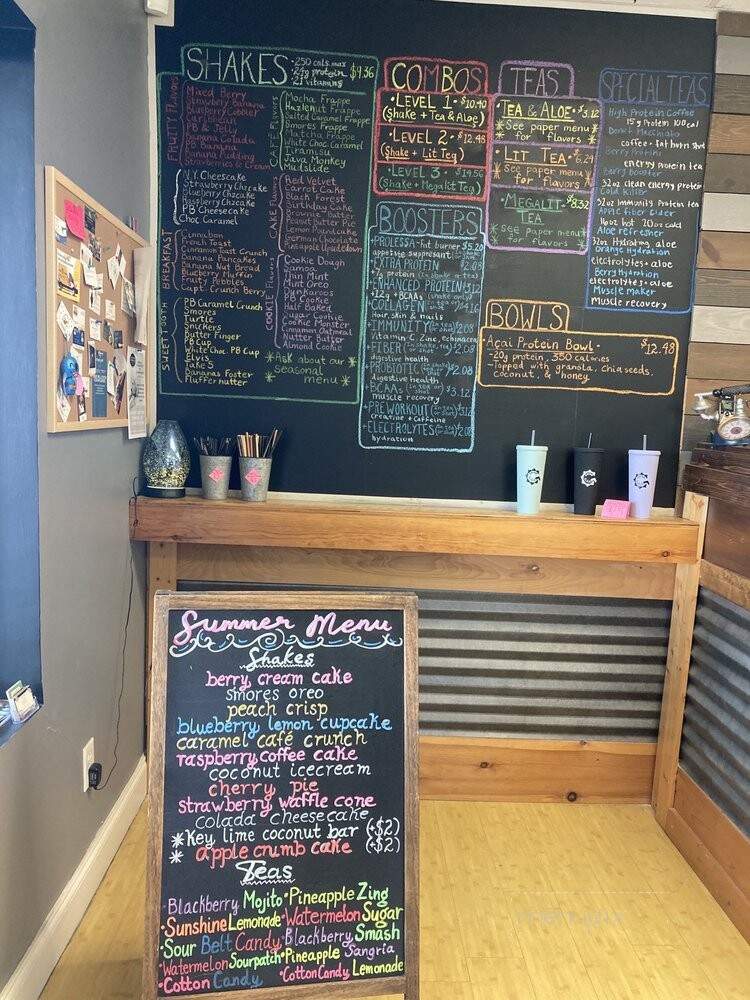 SHAKES
•250 cals max
•24g protein
•21 vitamins
$9.36
FRUITY Flavors
Mixed Berry
Strawberry Banana
Blueberry Cobbler
Caribbean
PB & Jelly
Banana Colada
PB Banana
Banana Pudding
Strawberries & Cream
N.Y. Cheesecake
Strawberry Chzcake
Blueberry Chzcake
Raspberry Chzcake
PB Cheesecake
Choc Caramel
BREAKFAST
Cinnabon
French Toast
Cinnamon Toast Crunch
Banana Pancakes
Banana Nut Bread
Blueberry Muffin
Fruity Pebbles
Capt. Crunch Berry
SWEET TOOTH
PB Caramel Crunch
Smores
Turtle
Snickers
Butter Finger
PB Cup
White Choc. PB Cup
Elvis
Take 5
Bananas Foster
Fluffernutter
CAFE Flavors
Mocha Frappe
Hazelnut Frappe
Salted Caramel Frappe
Smores Frappe
Matcha Frappe
White Choc Caramel
Tiramisu
Java Monkey
Mudslide
CAKE Flavors
Red Velvet
Carrot Cake
Black Forest
Birthday Cake
Brownie Batter
Peanut Butter Pie
Lemon Poundcake
German Chocolate
Pineapple Upsidedown
COOKIE Flavors
Cookie Dough
Samoa
Thin Mint
Mint Oreo
Dunkaroos
PB Cookie
Half Baked
Sugar Cookie
Cookie Monster
Cinnamon Oatmeal
Nutter Butter
Almond Cookie
*Ask about our
seasonal
menu*
COMBOS
LEVEL 1 • $10.40
(Shake + Tea & Aloe)
LEVEL 2 • $12.48
(Shake + Lit Tea)
LEVEL 3 • $14.56
(Shake + Megalit Tea)
BOOSTERS
•PROLESSA-fat burner $5.20
appetite suppresant
•EXTRA PROTEIN $2.08
+7g protein
•ENHANCED PROTEIN
+12g + BCAAs
•COLLAGEN
Hair, skin & nails
•IMMUNITY $2.08
Vitamin C, Zinc, echinacea
•FIBER $2.08
digestive health
•PROBIOTIC $2.08
digestive health
•BCAA $3.12
muscle recovery
•PREWORKOUT
Creatine + Caffeine
•ELECTROLYTES $2.08
hydration
TEAS
•TEA & ALOE • $3.12
*See paper menu*
for flavors
•LIT TEA • 6.24
*See paper menu*
for flavors
•MEGALIT • $8.32
TEA
*See paper menu*
for flavors
SPECIAL TEAS
High Protein Coffee
15g protein 100 cal
Donut Macchiato
coffee + fat burn shot
Berry Protini
energy protein tea
Berry Booster
32oz clean energy protein
Cold Killer
32oz Immunity protein tea
Apple fiber Cider
16oz hot 20oz cold
Aloe refresher
32oz Hydrating aloe
Orange Hydration
electrolytes + aloe
Berry Hydration
electrolytes + aloe
Muscle maker
Muscle recovery
BOWLS
•Açai Protein Bowl • $12.48
-20g protein, 330 calories
-Topped with granola, chia seeds,
coconut, & honey
Summer Menu
Shakes
berry cream cake
smores oreo
peach crisp
blueberry lemon cupcake
caramel café crunch
raspberry coffee cake
coconut icecream
cherry pie
strawberry waffle cone
colada cheesecake
*Key lime coconut bar (+$2)
*apple crumb cake (+$2)
Teas
Blackberry Mojito •Pineapple Zing
•Sunshine Lemonade •Watermelon Sugar
•Sour Belt Candy •Blackberry Smash
•Watermelon Sourpatch •Pineapple Sangria
•Cotton Candy •Cotton Candy Lemonade